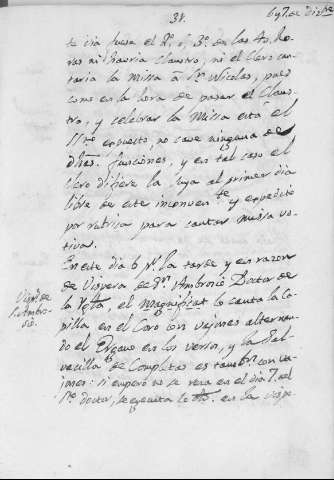 38.
6 y 7. de Dizbe
te dia fuese el 2º. ó 3º. de las 40. Ho-
ras ni havria Claustro, ni el Clero can-
taria la missa á Sn. Nicolas, pues
como en la hora de pasar el Claus-
tro, y celebrar la Missa está el
SSmo. expuesto, no cave ninguna de
dhas. funciones, y en tal caso el
Clero difiere la suya al primer dia
libre de este inconvente. y expedito
por rubrica para cantar missa vo-
tiva.
En este dia 6 pr. la tarde y en razon
de Vispera de Sn. Ambrosio Doctor de
la Ygla., el magnificat lo canta la Ca-
pilla en el Coro con vajones alternan-
do el Organo en los versos, y la Sal-
vecilla de Completas es tambn. con va-
jones: si empero no se reza en el dia 7. del
Sto. doctor, se executa lo dho. en la vispe
Visps. de
S. Ambro-
sio.